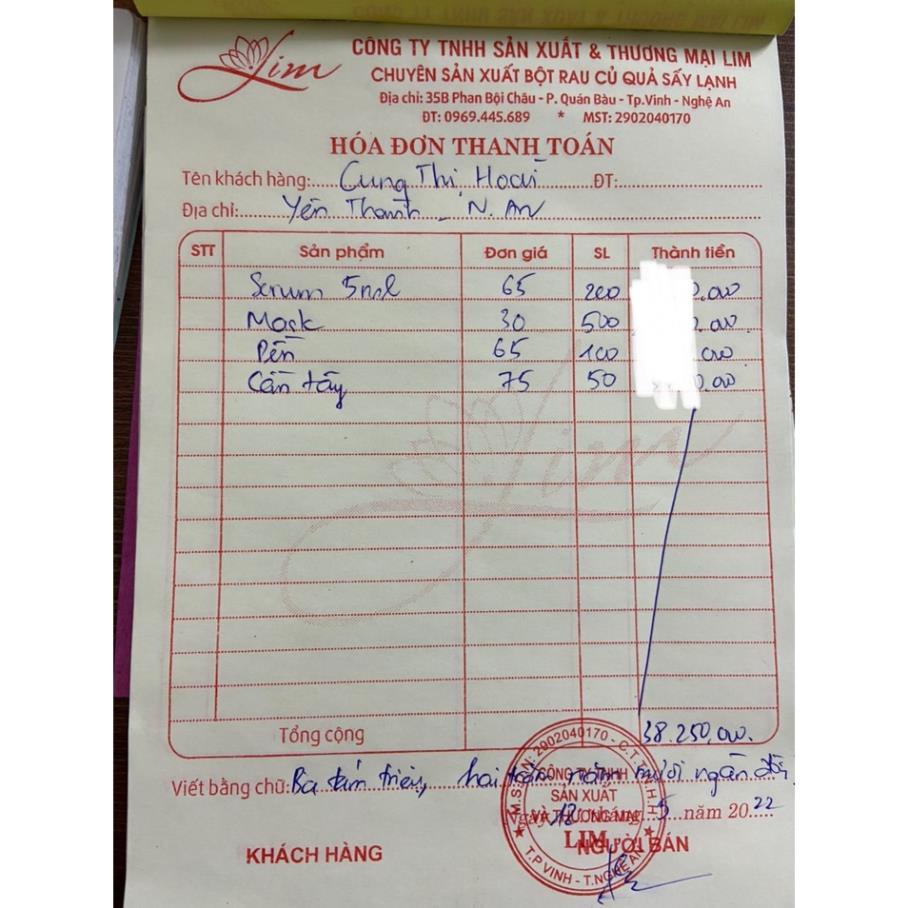 Lim
CÔNG TY TNHH SẢN XUẤT & THƯƠNG MẠI LIM
CHUYÊN SẢN XUẤT BỘT RAU CỦ QUẢ SẤY LẠNH
Địa chỉ: 35B Phan Bội Châu - P. Quán Bàu - Tp.Vinh - Nghệ An
ĐT: 0969.445.689 * MST: 2902040170
HÓA ĐƠN THANH TOÁN
Tên khách hàng: Cung Thị Hoài ĐT:
Địa chỉ: Yên Thành - N. An
STT Sản phẩm Đơn giá SL Thành tiền
Serum 5ml 65 200 0.000
Mask 30 500 .000
Pền 65 100 000
Cần tây 75 50 0.000
Lim
Tổng cộng 38.250.000.
Viết bằng chữ: Ba tám triệu, hai trăm năm mươi ngàn đồng
Ngày 12 tháng 5 năm 2022
KHÁCH HÀNG NGƯỜI BÁN
M.S.D.N: 2902040170 - C.T.T.N.H.H
CÔNG TY TNHH
SẢN XUẤT
VÀ THƯƠNG MẠI
LIM
T.P VINH - T.NGHỆ AN